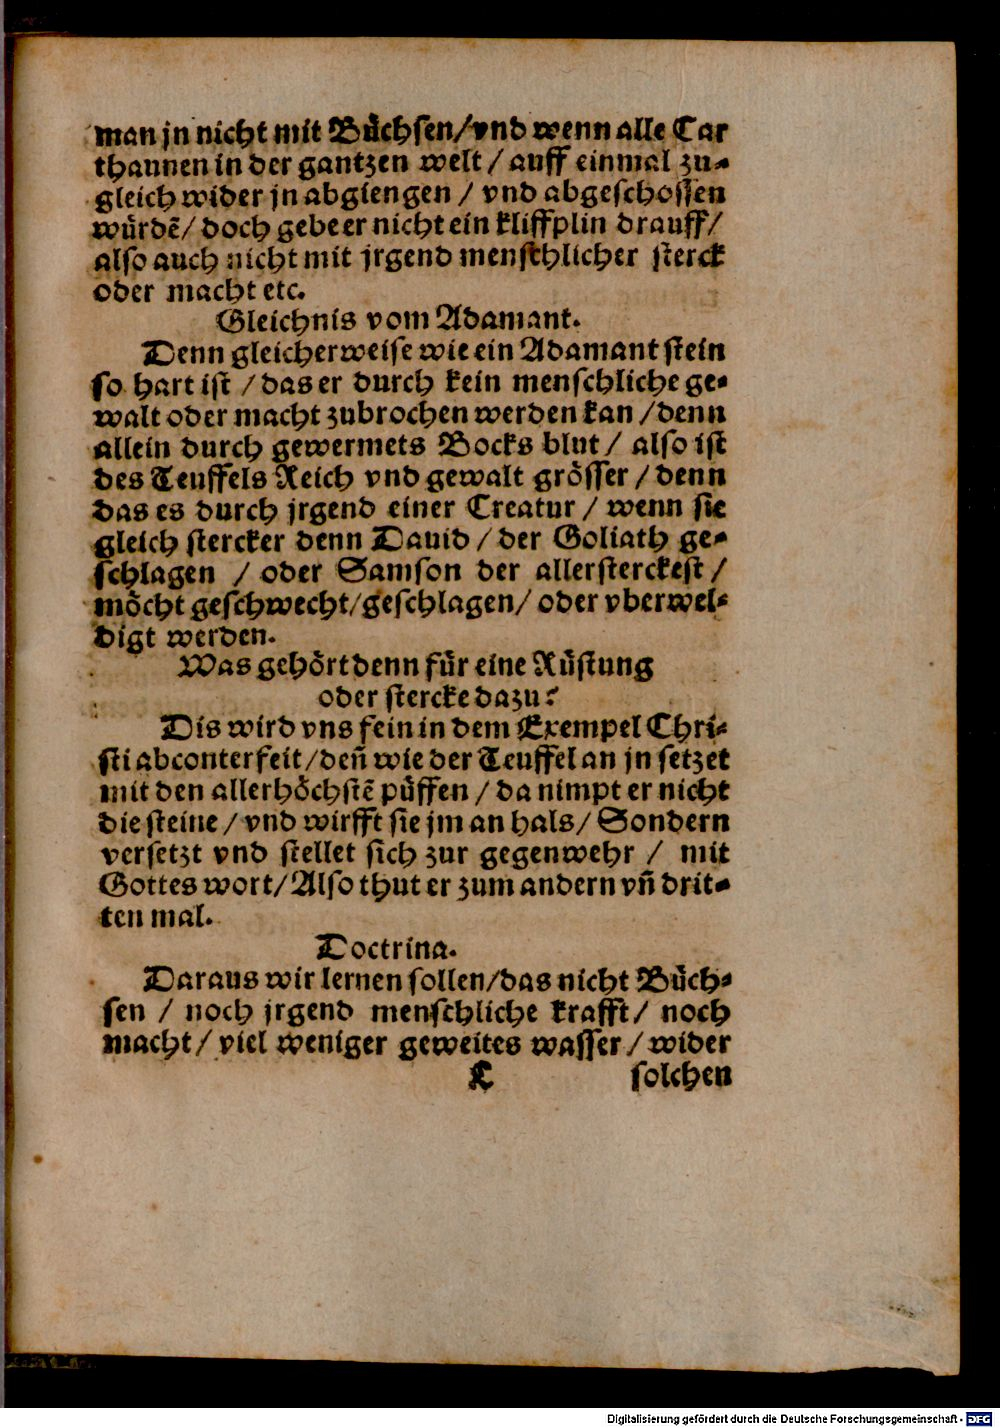 man jn nicht mit Büchsen/vnd wenn alle Car
thaunen in der gantzen welt / auff einmal zu-
gleich wider jn abgiengen / vnd abgeschossen
würdẽ/ doch gebe er nicht ein kliffplin drauff/
also auch nicht mit jrgend menschlicher sterck
oder macht etc.
Gleichnis vom Adamant.
Denn gleicherweise wie ein Adamant stein
so hart ist / das er durch kein menschliche ge-
walt oder macht zubrochen werden kan / denn
allein durch gewermets Bocks blut / also ist
des Teuffels Reich vnd gewalt grösser / denn
das es durch jrgend einer Creatur / wenn sie
gleich stercker denn Dauid / der Goliath ge-
schlagen / oder Samson der allersterckest /
möcht geschwecht/geschlagen/ oder vberwel-
digt werden.
Was gehört denn für eine Rüstung
oder stercke dazu?
Dis wird vns fein in dem Exempel Chri-
sti abconterfeit/deñ wie der Teuffel an jn setzet
mit den allerhöchstẽ püffen / da nimpt er nicht
die steine / vnd wirfft sie jm an hals/ Sondern
versetzt vnd stellet sich zur gegenwehr / mit
Gottes wort/ Also thut er zum andern vñ drit-
ten mal.
Doctrina.
Daraus wir lernen sollen/das nicht Büch-
sen / noch jrgend menschliche krafft/ noch
macht/ viel weniger geweites wasser / wider
C solchen
Digitalisierung gefördert durch die Deutsche Forschungsgemeinschaft - DFG